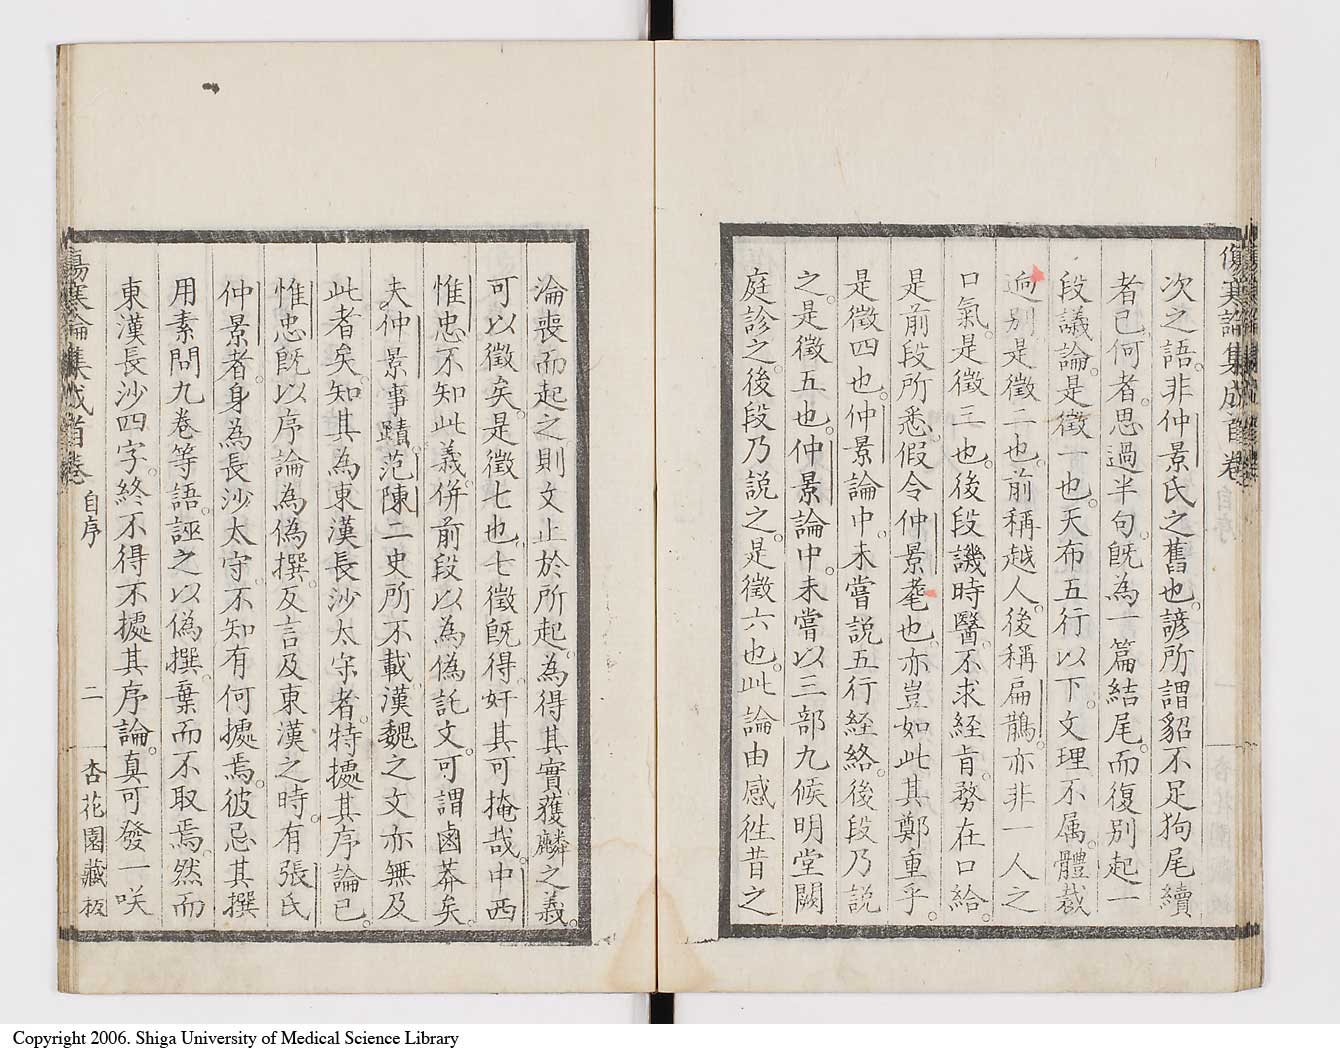 傷寒論集成首卷
次之語。非仲景氏之舊也。諺所謂貂不足狗尾續
者已。何者。思過半句。既為一篇結尾。而復別起一
段議論。是徵一也。天布五行以下。文理不属。體裁
逈別。是徵二也。前稱越人。後稱扁鵲。亦非一人之
口氣。是徵三也。後段譏時醫。不求経旨。務在口給。
是前段所悉。假令仲景耄也。亦豈如此其鄭重乎。
是徵四也。仲景論中。未嘗説五行経絡。後段乃説
之。是徵五也。仲景論中。未嘗以三部九候明堂闕
庭診之。後段乃説之。是徵六也。此論由感往昔之
淪喪而起之。則文止於所起。為得其實。獲麟之義。
可以徵矣。是徵七也。七徵既得。奸其可掩哉。中西
惟忠不知此義。併前段以為偽託文。可謂鹵莽矣。
夫仲景事蹟。范陳二史所不載。漢魏之文亦無及
此者矣。知其為東漢長沙太守者。特據其序論已。
惟忠既以序論為偽撰。及言及東漢之時。有張氏
仲景者。身為長沙太守。不知有何據焉。彼忌其撰
用素問九卷等語。誣之以偽撰。棄而不取焉。然而
東漢長沙四字。終不得不據其序論。真可發一咲
傷寒論集成首卷
自序
二
杏花園藏板
Copyright 2006. Shiga University of Medical Science Library